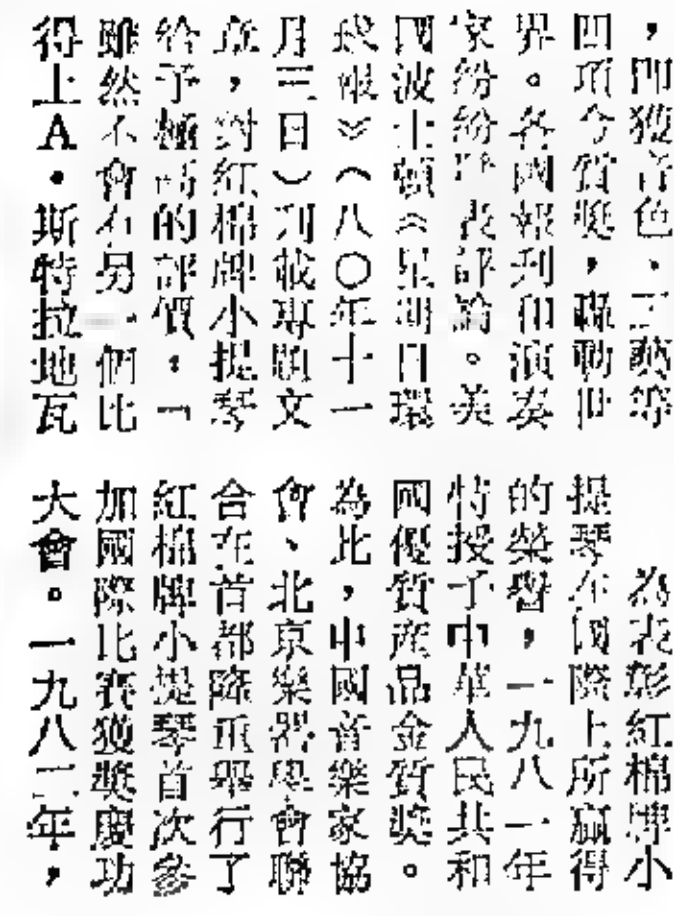 ，即獲音色、工藝等
四項今質奬，轟動世
界。各國報刊和演奏
家紛紛發表評論。美
國波士頓《星期日環
球報》（八〇年十一
月三日）刋載專題文
章，對紅棉牌小提琴
給予極高的評價：「
雖然不會有另一個比
得上A·斯特拉地瓦
為表彰紅棉牌小
提琴在國際上所贏得
的榮譽，一九八一年
特授予中華人民共和
國優質產品金質奬。
為此，中國音樂家協
會、北京樂器學會聯
合在首都隆重舉行了
紅棉牌小提琴首次參
加國際比賽獲奬慶功
大會。一九八二年，